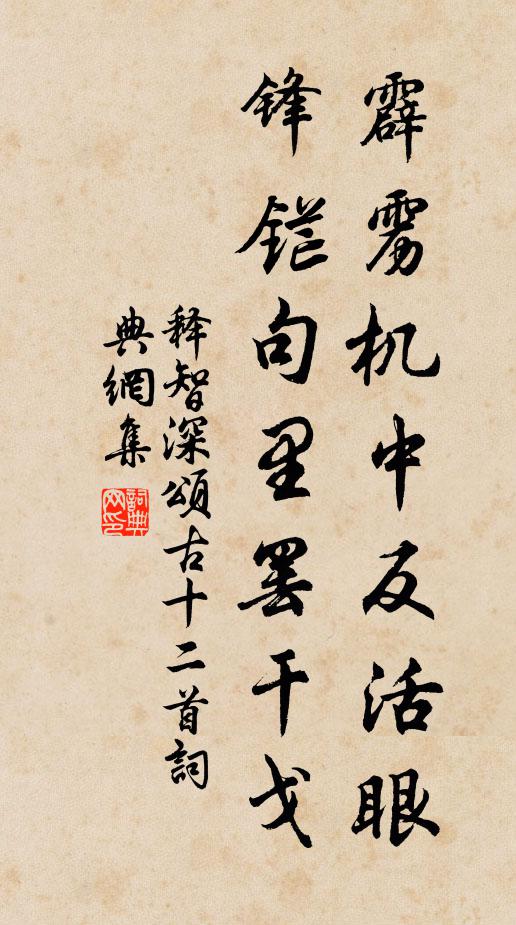 霹雳机中反活眼
锋铓句里罢干戈
释智深頌古十二首詞
典網集
詞典
网印